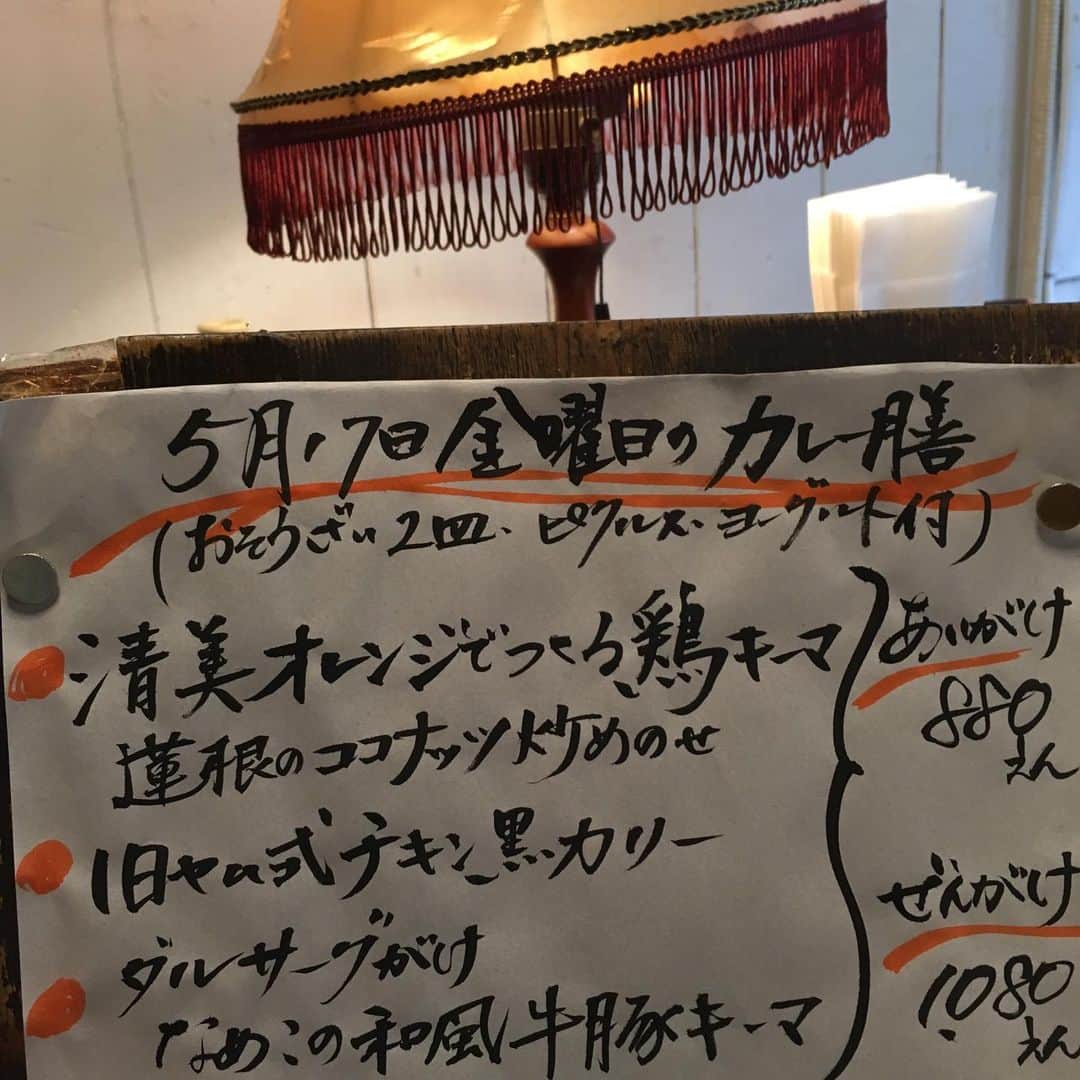 5月17日金曜日のカレー膳
(おそうざい2皿、ピクルス、ヨーグルト付)
清美オレンジでつくる鶏キーマ
蓮根のココナッツ炒めのせ
旧ヤム式チキン黒カリー
ダルサーグがけ
なめこの和風牛豚キーマ
あいがけ
880
えん
ぜんがけ
1080
えん